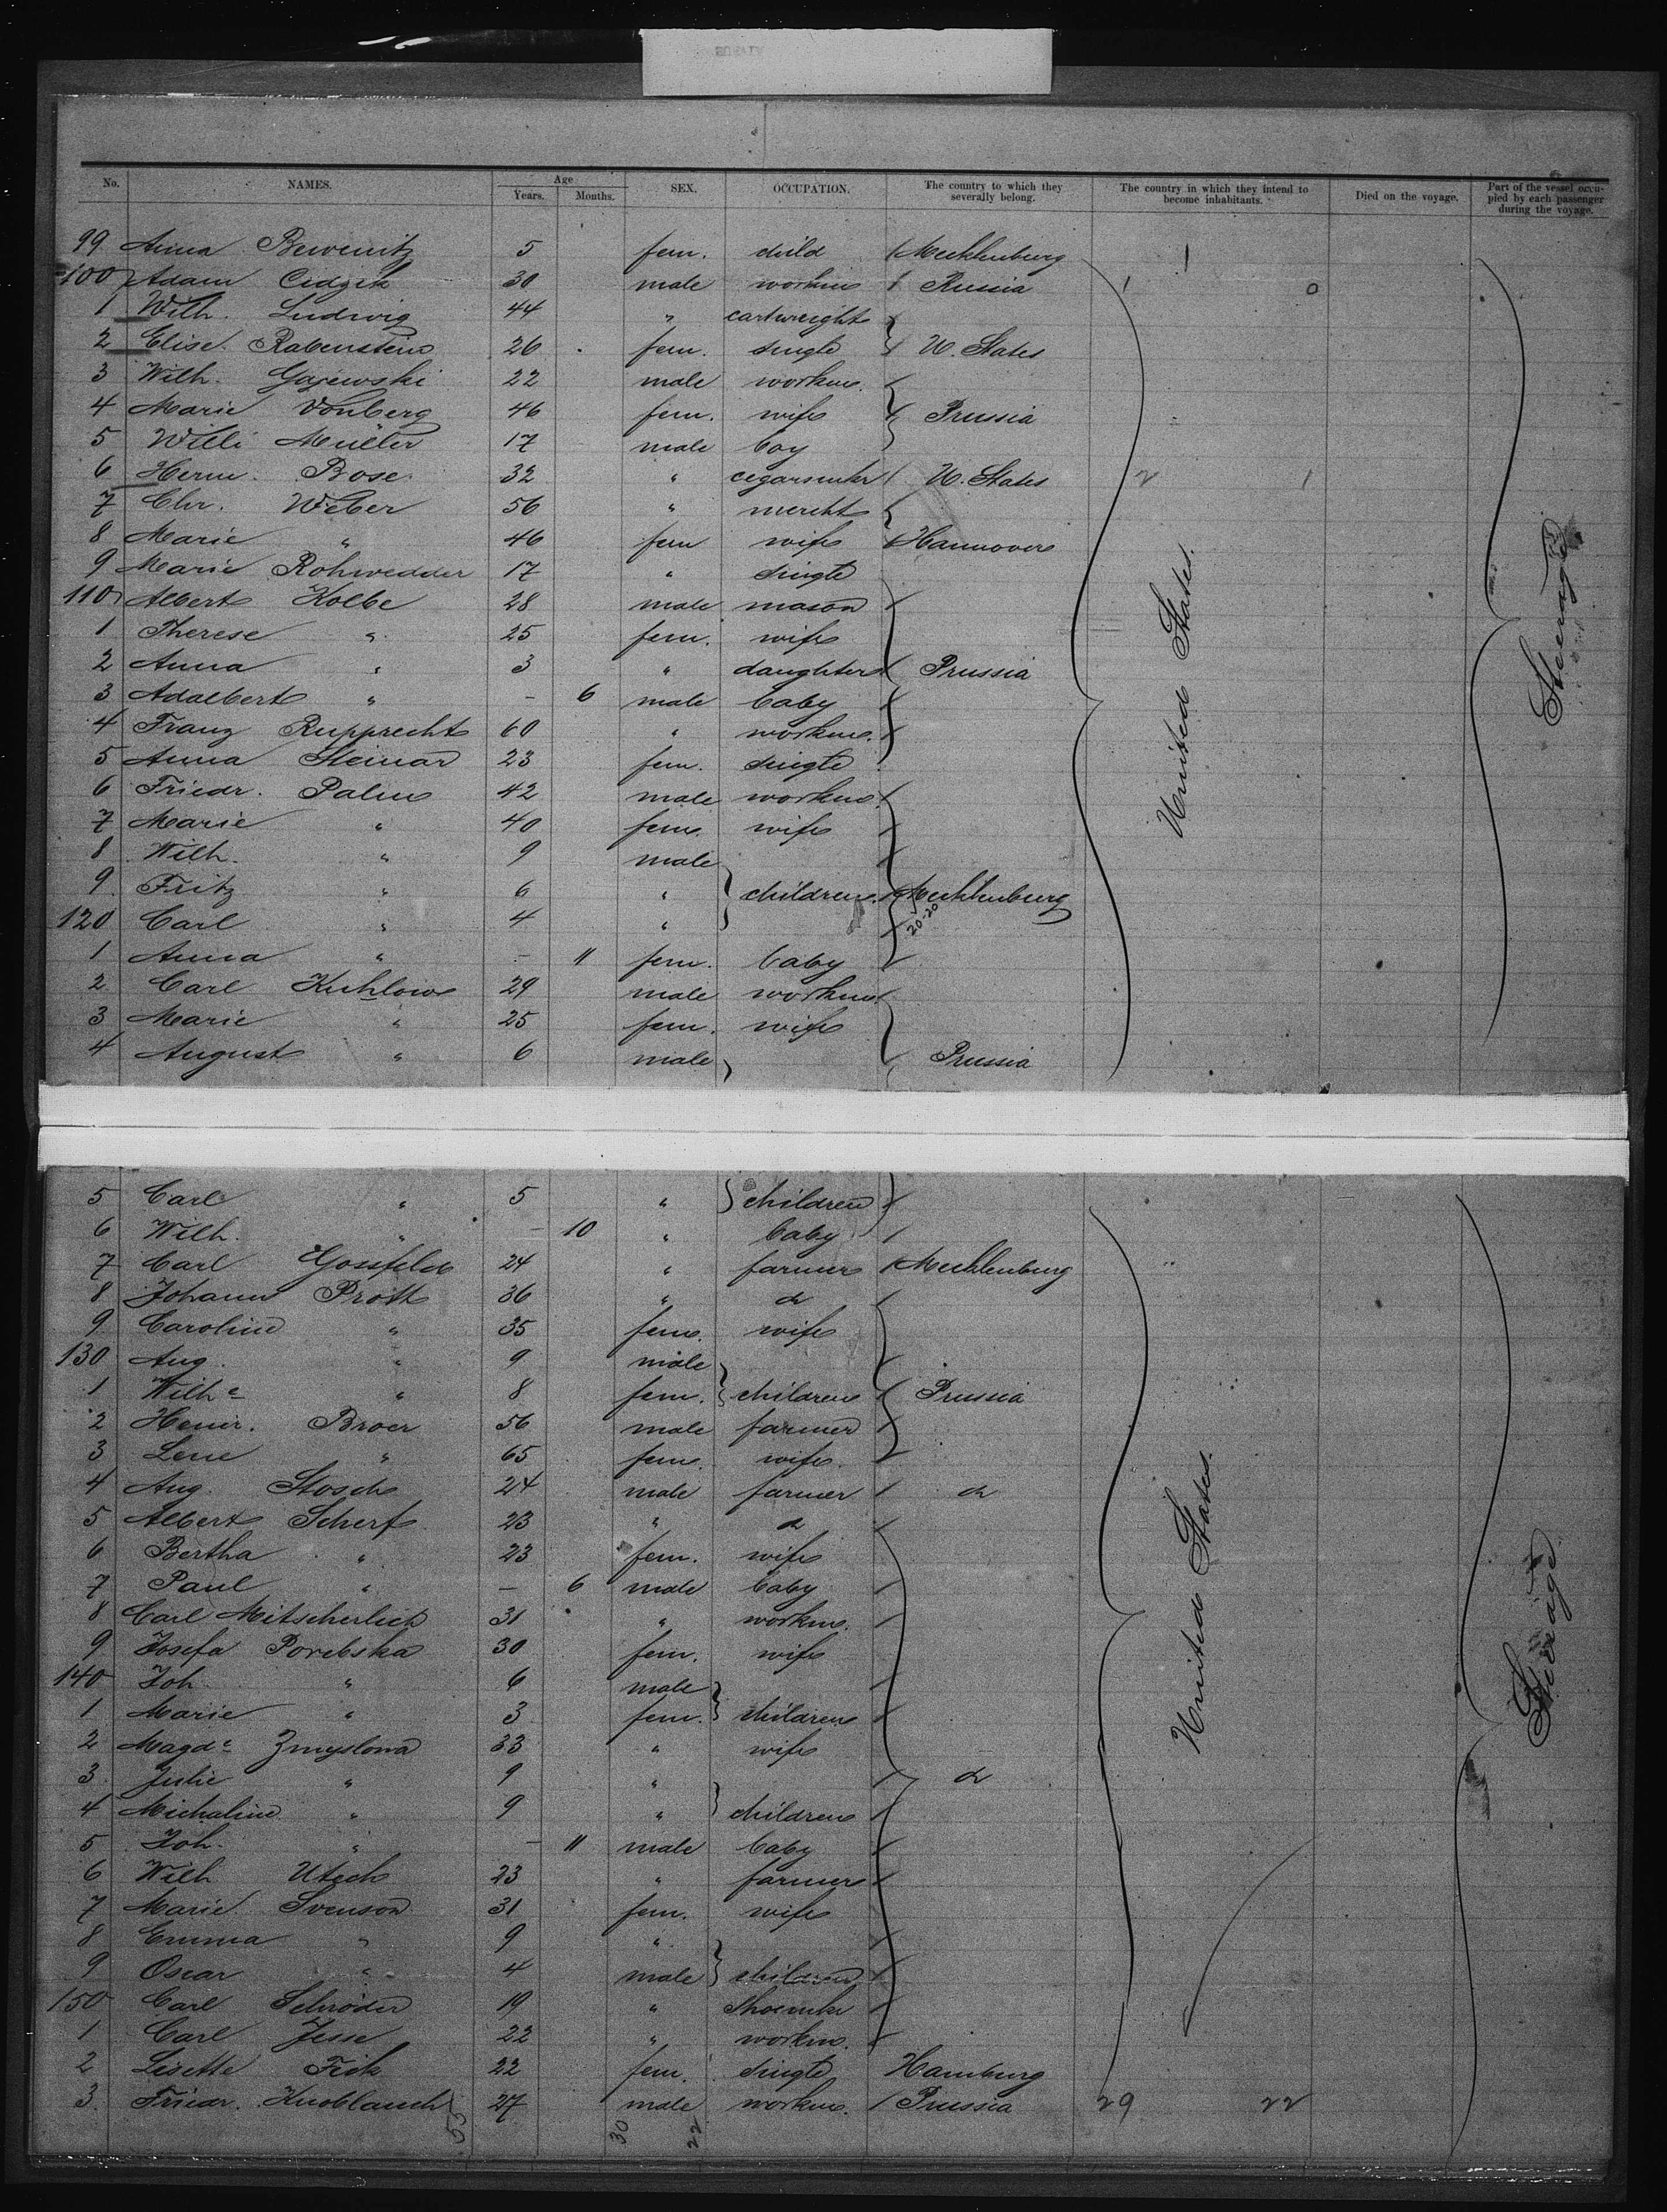 No. NAMES. Age Years. Months. SEX. OCCUPATION. The country to which they severally belong. The country in which they intend to become inhabitants. Died on the voyage. Part of the vessel occupied by each passenger during the voyage.
99 Anna Bewernitz 5 fem. child Mecklenburg 1
100 Adam Cidzik 30 male workm Russia 1 0
1 Wilh. Ludwig 44 " cartwright
2 Elise Rabenstein 26 fem. single U. States
3 Wilh. Gajewski 22 male workm.
4 Marie Vonberg 46 fem. wife Prussia
5 Willi Müller 17 male boy
6 Herm. Bose 32 " cegarmkr U. States 2 1
7 Chr. Weber 56 " mercht
8 Marie " 46 fem wife Hannover
9 Marie Rohwedder 17 " single
110 Albert Kolbe 28 male mason
1 Therese " 25 fem. wife
2 Anna " 3 " daughter Prussia United States. Steerage
3 Adalbert " – 6 male baby
4 Franz Rupprecht 60 " workm.
5 Anna Steinar 23 fem. single
6 Friedr. Palm 42 male workm.
7 Marie " 40 fem. wife
8 Wilh. " 9 male
9 Fritz " 6 " children Mecklenburg
20-20
120 Carl " 4 "
1 Anna " – 11 fem. baby
2 Carl Kuhlow 29 male workm.
3 Marie " 25 fem. wife
4 August " 6 male Prussia
5 Carl " 5 " children
6 Wilh. " – 10 " baby
7 Carl Gossfeld 24 " farmer Mecklenburg
8 Johann Prott 36 " do
9 Caroline " 35 fem. wife
130 Aug. " 9 male
1 Wilhe " 8 fem. children Prussia
2 Heinr. Broer 56 male farmer
3 Lene " 65 fem. wife
4 Aug. Stosch 24 male farmer do
5 Albert Scherf 23 " do
6 Bertha " 23 fem. wife
7 Paul " – 6 male baby
8 Carl Mitscherlich 31 " workm.
9 Josefa Porebska 30 fem. wife United States. Steerage
140 Joh. " 6 male
1 Marie " 3 fem. children
2 Magde Zmyslona 33 " wife
3 Julie " 9 " do
4 Michaline " 9 " children
5 Joh. " – 11 male baby
6 Wilh Utech 23 " farmer
7 Marie Svenson 31 fem. wife
8 Emma " 9 "
9 Oscar " 4 male children
150 Carl Schröder 19 " Shoemkr
1 Carl Jesse 22 " workm.
2 Lisette Fick 22 fem. single Hamburg
3 Friedr. Knoblauch 27 male workm. Prussia 29 22
55 30 22